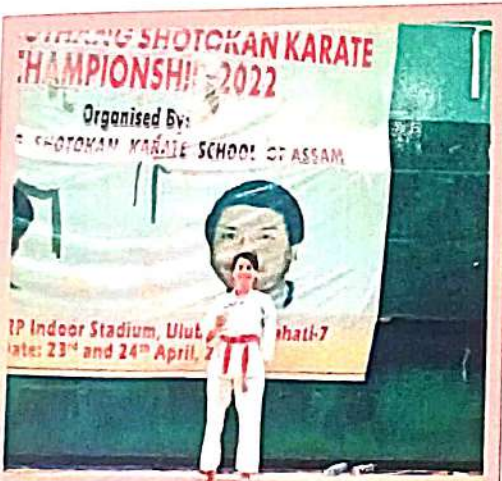 SHOTOKAN KARATE
CHAMPIONSHIP-2022
Organised By:
SHOTOKAN KARATE SCHOOL OF ASSAM
RP Indoor Stadium,
Date: 23rd and 24th April,